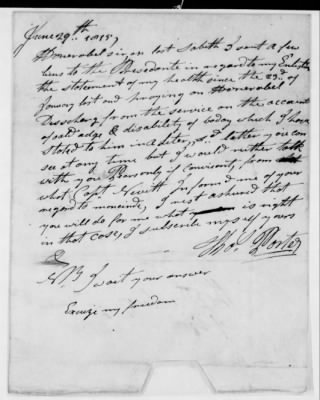 June 29th 1815,
Honerabel sir, on last Sabith I sent a few
liens to the Presedente in regard to my Enlistm
the statement of my health since the 23d of
January last and praying an Honerabel
Discharg from the service on the account
of old adge & disability of boday which I have
stated to him in a letter, letter you can
see at any time but I would rather talk
with you Personly if Convinant, from
what Capt. Nevitt Informd me of your
regard to moncind, I rest ashured that
you will do for me what is right
in that case, I subscribe myself yours
&
Tho. Porter
NB I wait your answer
Excuze my freedom